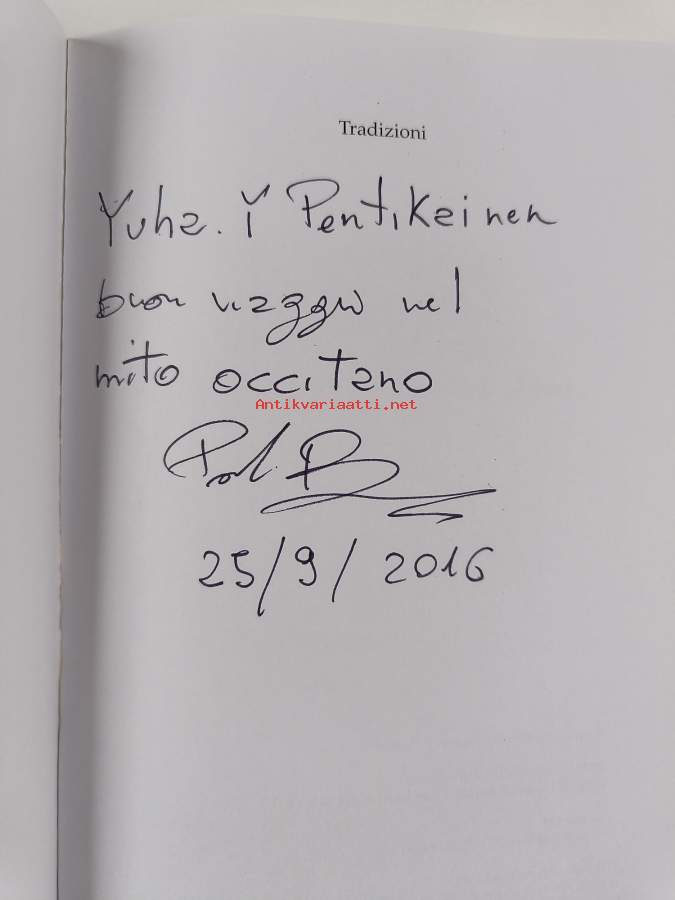 Tradizioni
Yuha. Y Pentikeinen
buon viaggio nel
mito occitano
Antikvariaatti.net
25/9/2016